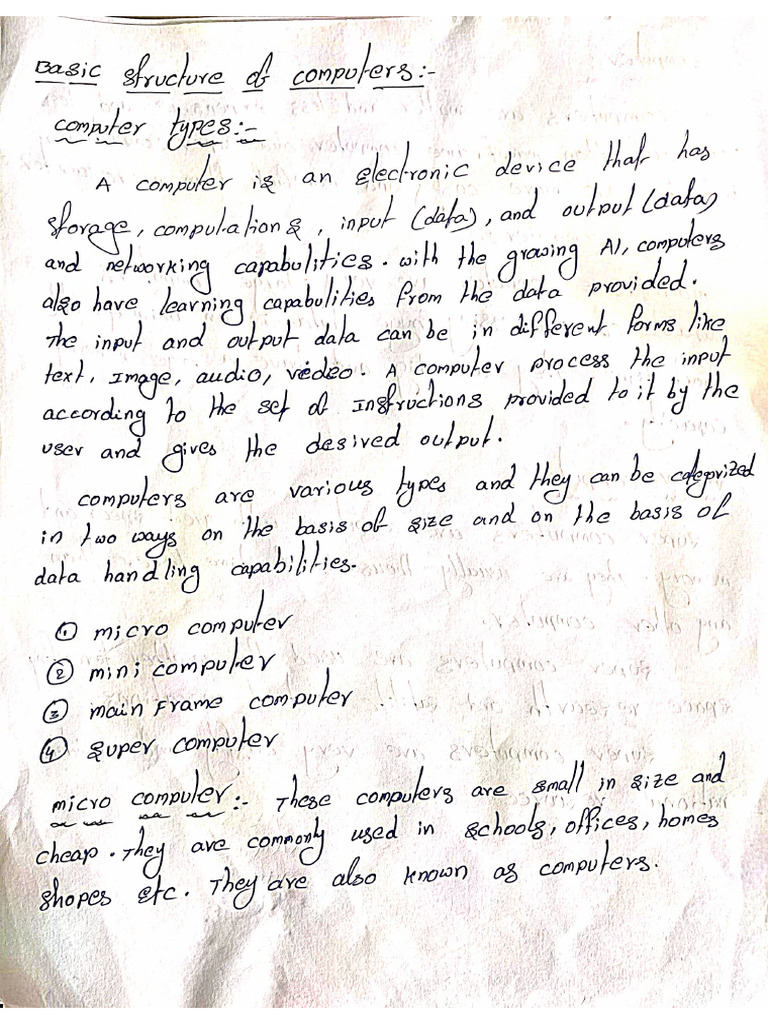 Basic structure of computers:-
computer types:-
A computer is an electronic device that has
storage, computations, input (data), and output (data)
and networking capabulities. with the growing AI, computers
also have learning capabulities from the data provided.
The input and output data can be in different forms like
text, Image, audio, video. A computer process the input
according to the set of Instructions provided to it by the
user and gives the desired output.
computers are various types and they can be categorized
in two ways on the basis of size and on the basis of
data handling capabilities.
① micro computer
② mini computer
③ main Frame computer
④ super computer
micro computer:- These computers are small in size and
cheap. They are commonly used in schools, offices, homes
shopes etc. They are also known as computers.